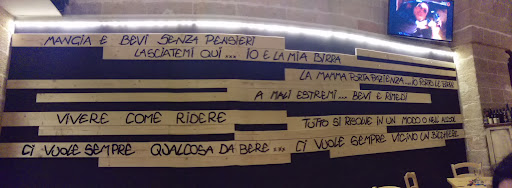 MANGIA E BEVI SENZA PENSIERI
LASCIATEMI QUI... IO E LA MIA BIRRA
LA MAMMA PORTA PAZIENZA... IO PORTO LE BIRRE
A MALI ESTREMI... BEVI E RIMEDI
VIVERE COME RIDERE
TUTTO SI RISOLVE IN UN MODO O NELL'ALCOOL
CI VUOLE SEMPRE QUALCOSA DA BERE...
CI VUOLE SEMPRE VICINO UN BICCHIERE